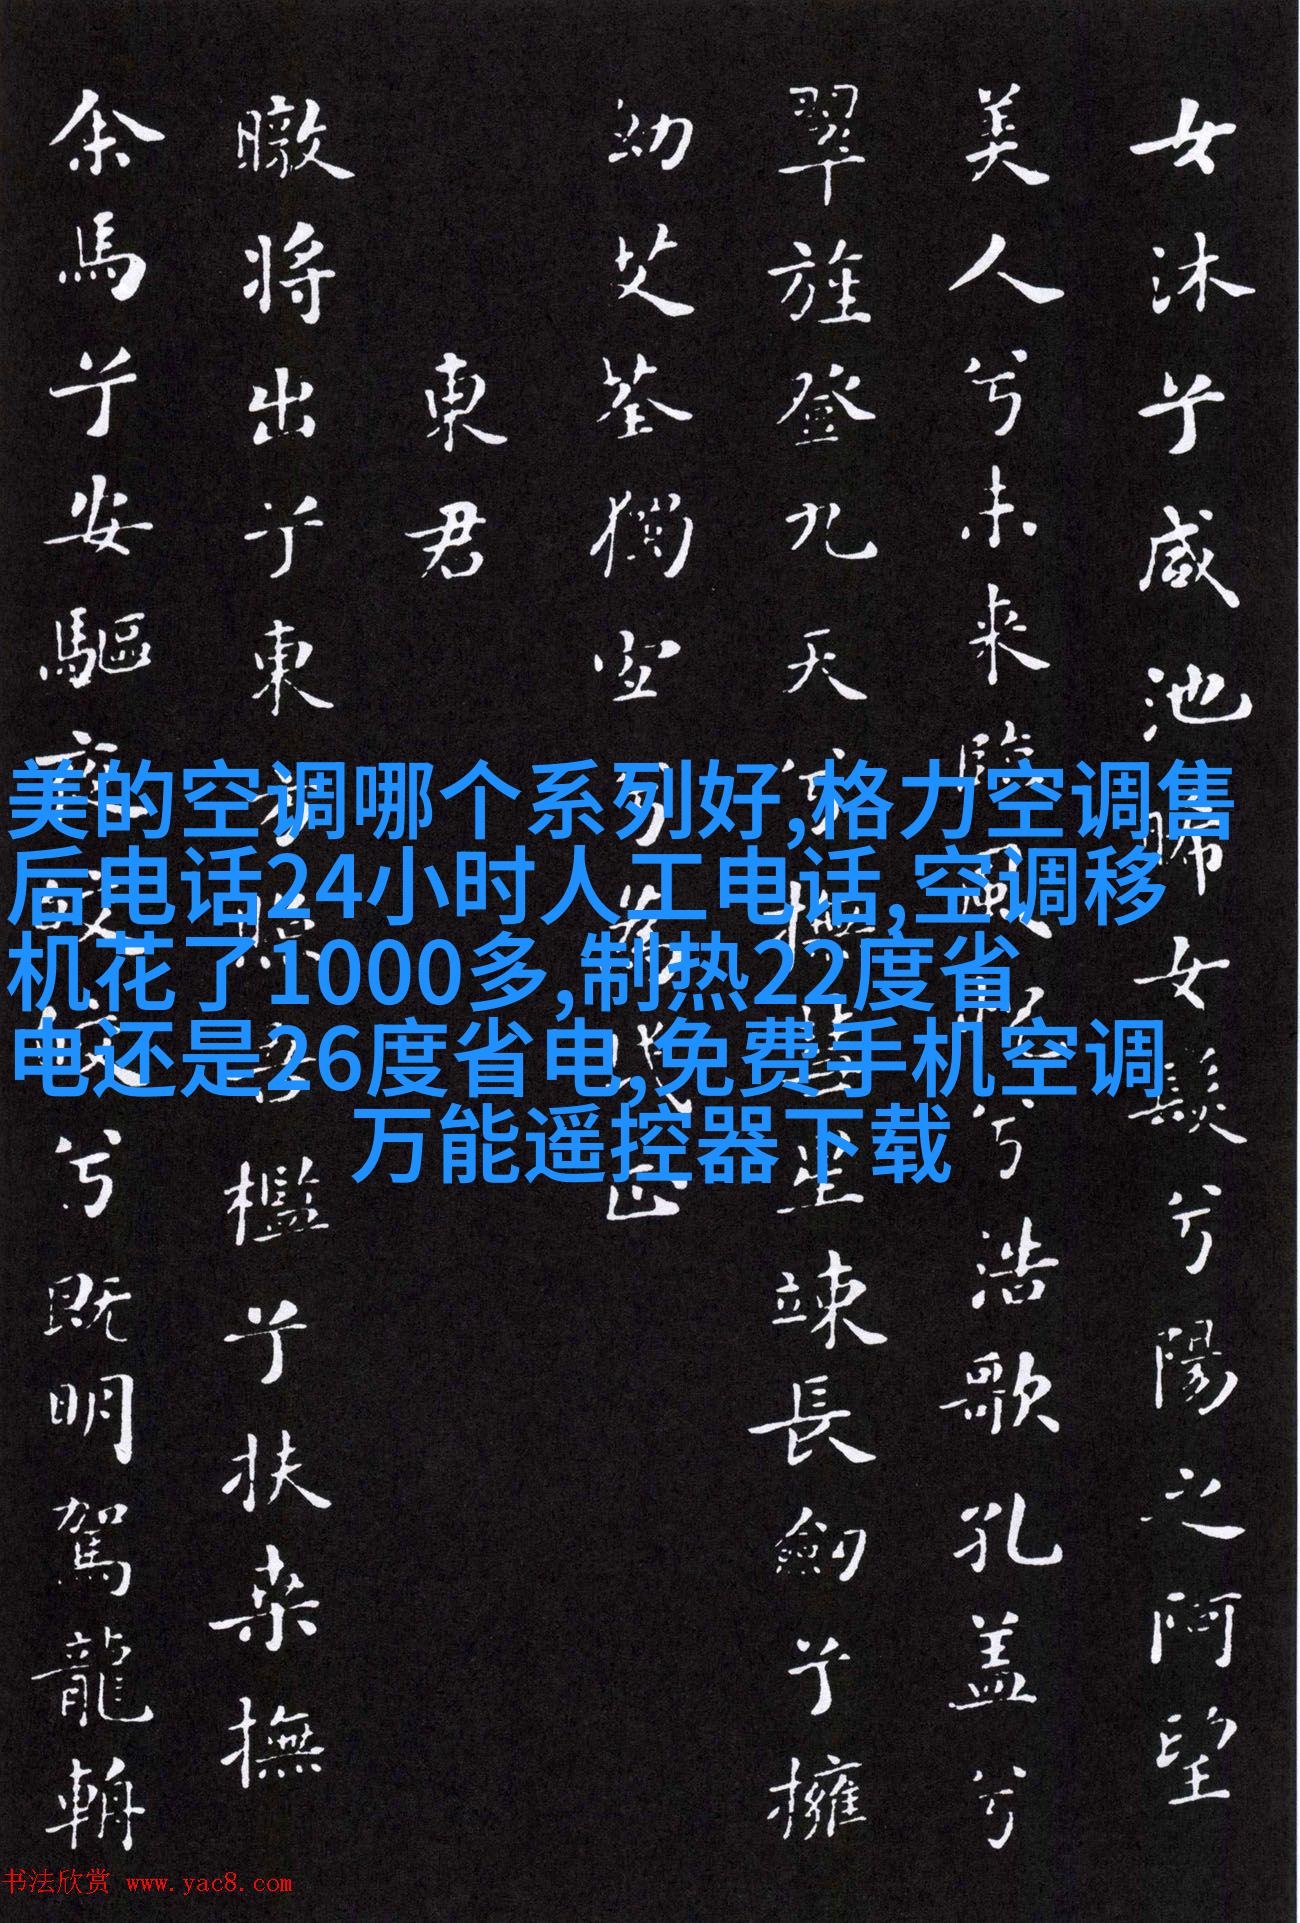 女沐兮咸池晞女髮兮陽之阿望
美人兮未来臨風兮浩歌孔盖兮
翠旌登九天兮撫彗星竦長劍兮擁
幼艾荃獨宜兮為民正
東君
暾將出兮東方照吾檻兮扶桑撫
余馬兮安驅夜皎皎兮既明駕龍輈
美的空调哪个系列好,格力空调售
后电话24小时人工电话,空调移
机花了1000多,制热22度省
电还是26度省电,免费手机空调
万能遥控器下载
书法欣赏 www.yac8.com